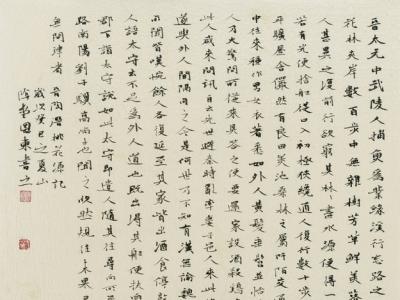 晉太元中武陵人捕魚為業緣溪行忘路之
花林夾岸數百步中無雜樹芳草鮮美落
人甚異之復前行欲窮其林林盡水源便得一
若有光便捨船從口入初極狹纔通人復行數十步
平曠屋舍儼然有良田美池桑林之屬阡陌交通
中往來種作男女衣著悉如外人黃髮垂髫並怡
人乃大驚問所從來具答之便要還家設酒殺雞
此人咸來問訊自云先世避秦時亂率妻子邑人來此
遂與外人間隔問今是何世乃不知有漢無論魏
所聞皆嘆惋餘人各復延至其家皆出酒食停數
人語太守云不足為外人道也既出得其船便扶向
郡下詣太守說如此太守即遣人隨其往尋向所
路南陽劉子驥高尚士也聞之欣然規往未果
無問津者 陶潛桃花源記
歲次癸巳之夏山
東書之